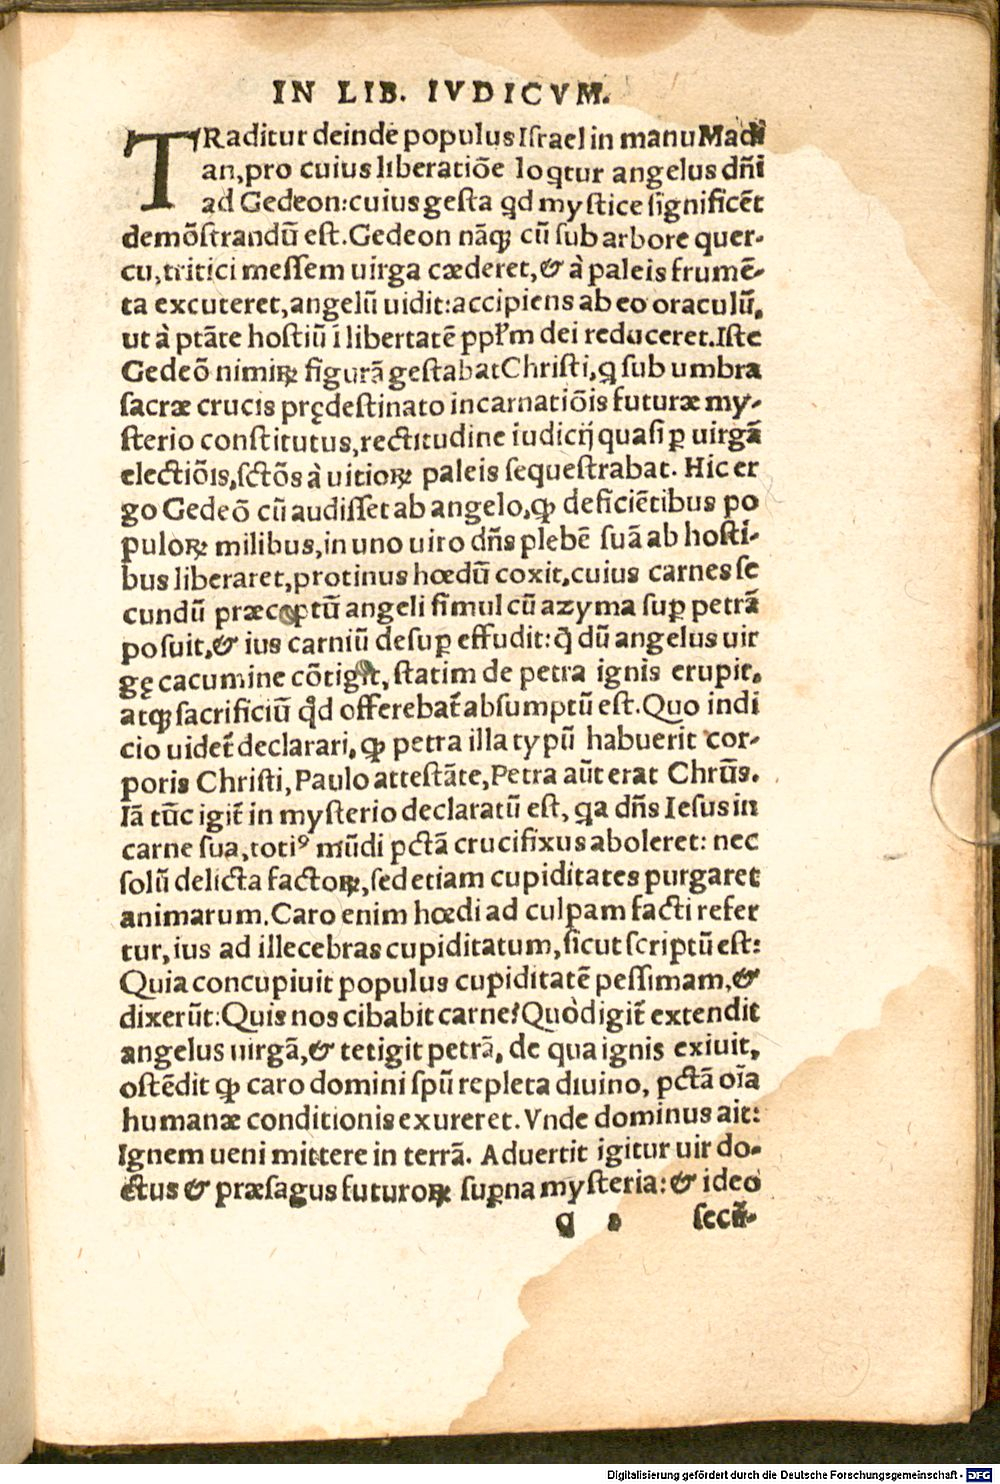 IN LIB. IVDICVM.
TRaditur deinde populus Israel in manu Madi
an, pro cuius liberatiõe loqtur angelus dñi
ad Gedeon: cuius gesta qd mystice significẽt
demõstrandũ est. Gedeon nãq; cũ sub arbore quer-
cu, tritici messem uirga cæderet, & à paleis frumẽ-
ta excuteret, angelũ uidit: accipiens ab eo oraculũ,
ut à ptãte hostiũ ĩ libertatẽ ppl'm dei reduceret. Iste
Gedeõ nimiꝝ figurã gestabat Christi, q sub umbra
sacræ crucis prędestinato incarnatiõis futuræ my-
sterio constitutus, rectitudine iudicij quasi ꝑ uirgã
electiõis, sctõs à uitioꝝ paleis sequestrabat. Hic er
go Gedeõ cũ audisset ab angelo, ꝙ deficiẽtibus po
puloꝝ milibus, in uno uiro dñs plebẽ suã ab hosti-
bus liberaret, protinus hœdũ coxit, cuius carnes se
cundũ præceptũ angeli simul cũ azyma suꝑ petrã
posuit, & ius carniũ desuꝑ effudit: q̃ dũ angelus uir
gę cacumine cõtigit, statim de petra ignis erupit,
atq; sacrificiũ qd̛ offerebat̃ absumptũ est. Quo indi
cio uidet̃ declarari, ꝙ petra illa typũ habuerit cor-
poris Christi, Paulo attestãte, Petra aũt erat Chrũs.
Iã tũc igit̃ in mysterio declaratũ est, qa dñs Iesus in
carne sua, totiꝰ mũdi pctã crucifixus aboleret: nec
solũ delicta factoꝝ, sed etiam cupiditates purgaret
animarum. Caro enim hœdi ad culpam facti refer
tur, ius ad illecebras cupiditatum, sicut scriptũ est:
Quia concupiuit populus cupiditatẽ pessimam, &
dixerũt: Quis nos cibabit carne? Quòd igit̃ extendit
angelus uirgã, & tetigit petrã, de qua ignis exiuit,
ostẽdit ꝙ caro domini spũ repleta diuino, pctã oĩa
humanæ conditionis exureret. Vnde dominus ait:
Ignem ueni mittere in terrã. Aduertit igitur uir do-
ctus & præsagus futuroꝝ suꝑna mysteria: & ideo
q a secũ-
Digitalisierung gefördert durch die Deutsche Forschungsgemeinschaft - DFG